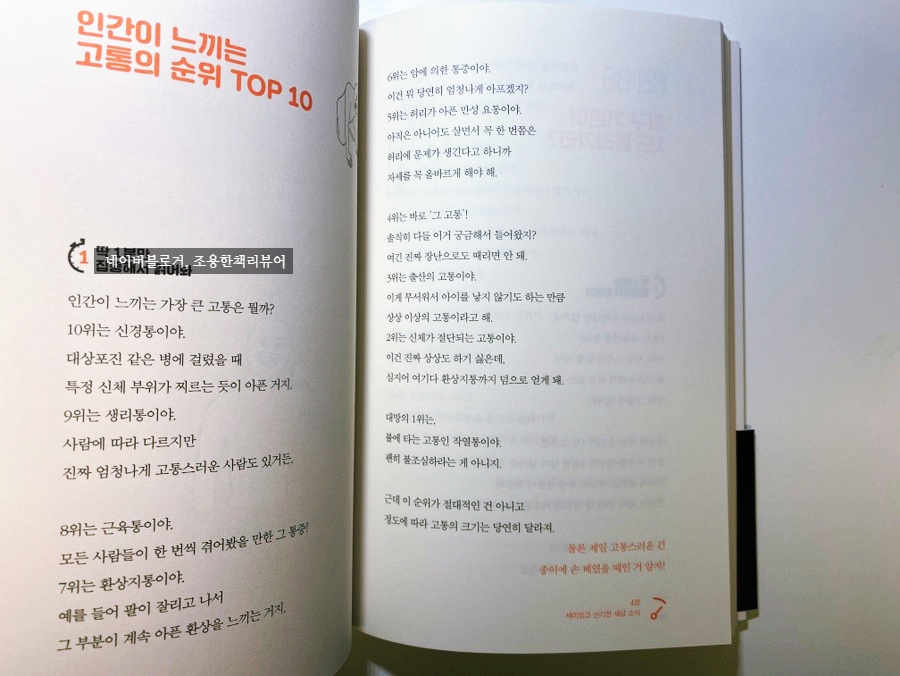 인간이 느끼는
고통의 순위 TOP 10
1
딱 1분만
집중해서 읽어봐
네이버블로거, 조용한책리뷰어
인간이 느끼는 가장 큰 고통은 뭘까?
10위는 신경통이야.
대상포진 같은 병에 걸렸을 때
특정 신체 부위가 찌르는 듯이 아픈 거지.
9위는 생리통이야.
사람에 따라 다르지만
진짜 엄청나게 고통스러운 사람도 있거든.
8위는 근육통이야.
모든 사람들이 한 번씩 겪어봤을 만한 그 통증!
7위는 환상지통이야.
예를 들어 팔이 잘리고 나서
그 부분이 계속 아픈 환상을 느끼는 거지.
6위는 암에 의한 통증이야.
이건 뭐 당연히 엄청나게 아프겠지?
5위는 허리가 아픈 만성 요통이야.
아직은 아니어도 살면서 꼭 한 번쯤은
허리에 문제가 생긴다고 하니까
자세를 꼭 올바르게 해야 해.
4위는 바로 '그 고통'!
솔직히 다들 이거 궁금해서 들어왔지?
여긴 진짜 장난으로도 때리면 안 돼.
3위는 출산의 고통이야.
이게 무서워서 아이를 낳지 않기도 하는 만큼
상상 이상의 고통이라고 해.
2위는 신체가 절단되는 고통이야.
이건 진짜 상상도 하기 싫은데,
심지어 여기다 환상지통까지 덤으로 얻게 돼.
대망의 1위는,
불에 타는 고통인 작열통이야.
괜히 불조심하라는 게 아니지.
근데 이 순위가 절대적인 건 아니고
정도에 따라 고통의 크기는 당연히 달라져.
물론 제일 고통스러운 건
종이에 손 베였을 때인 거 알지?
4장
재미있고 신기한 세상 소식